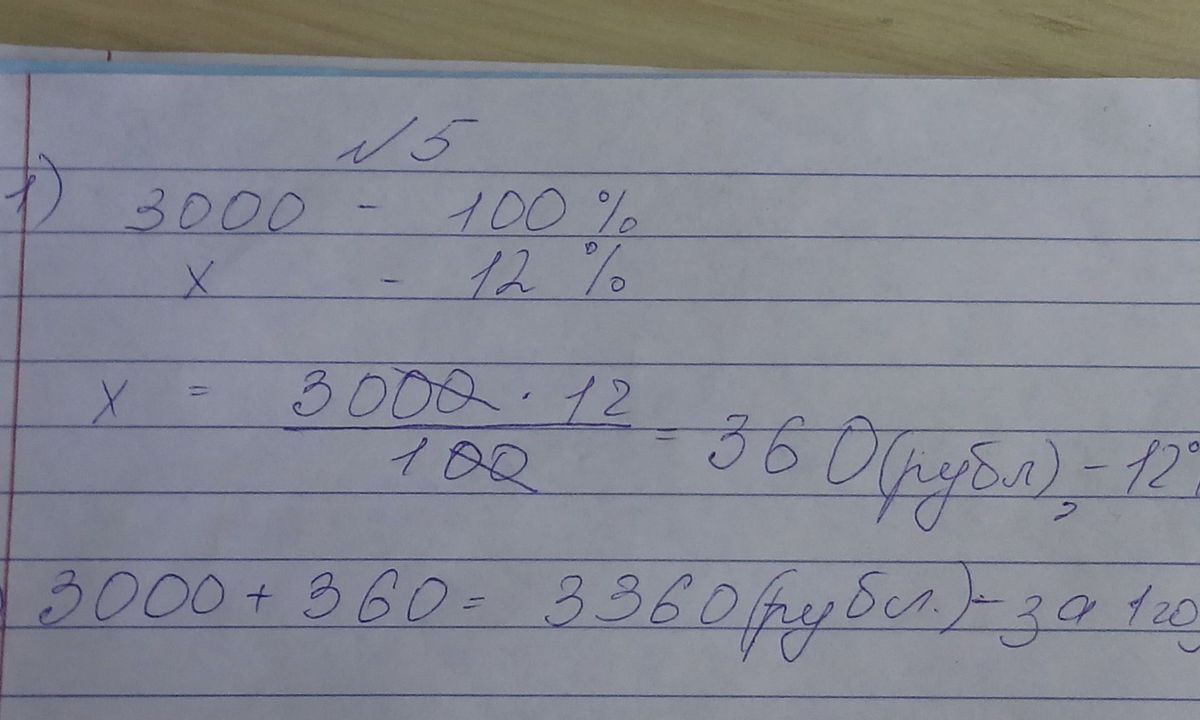 №5
1) 3000 - 100%
x - 12%
x = 3000 · 12 / 100 = 360 (рубл), - 12%
3000 + 360 = 3360 (рубл.) - за 1 го